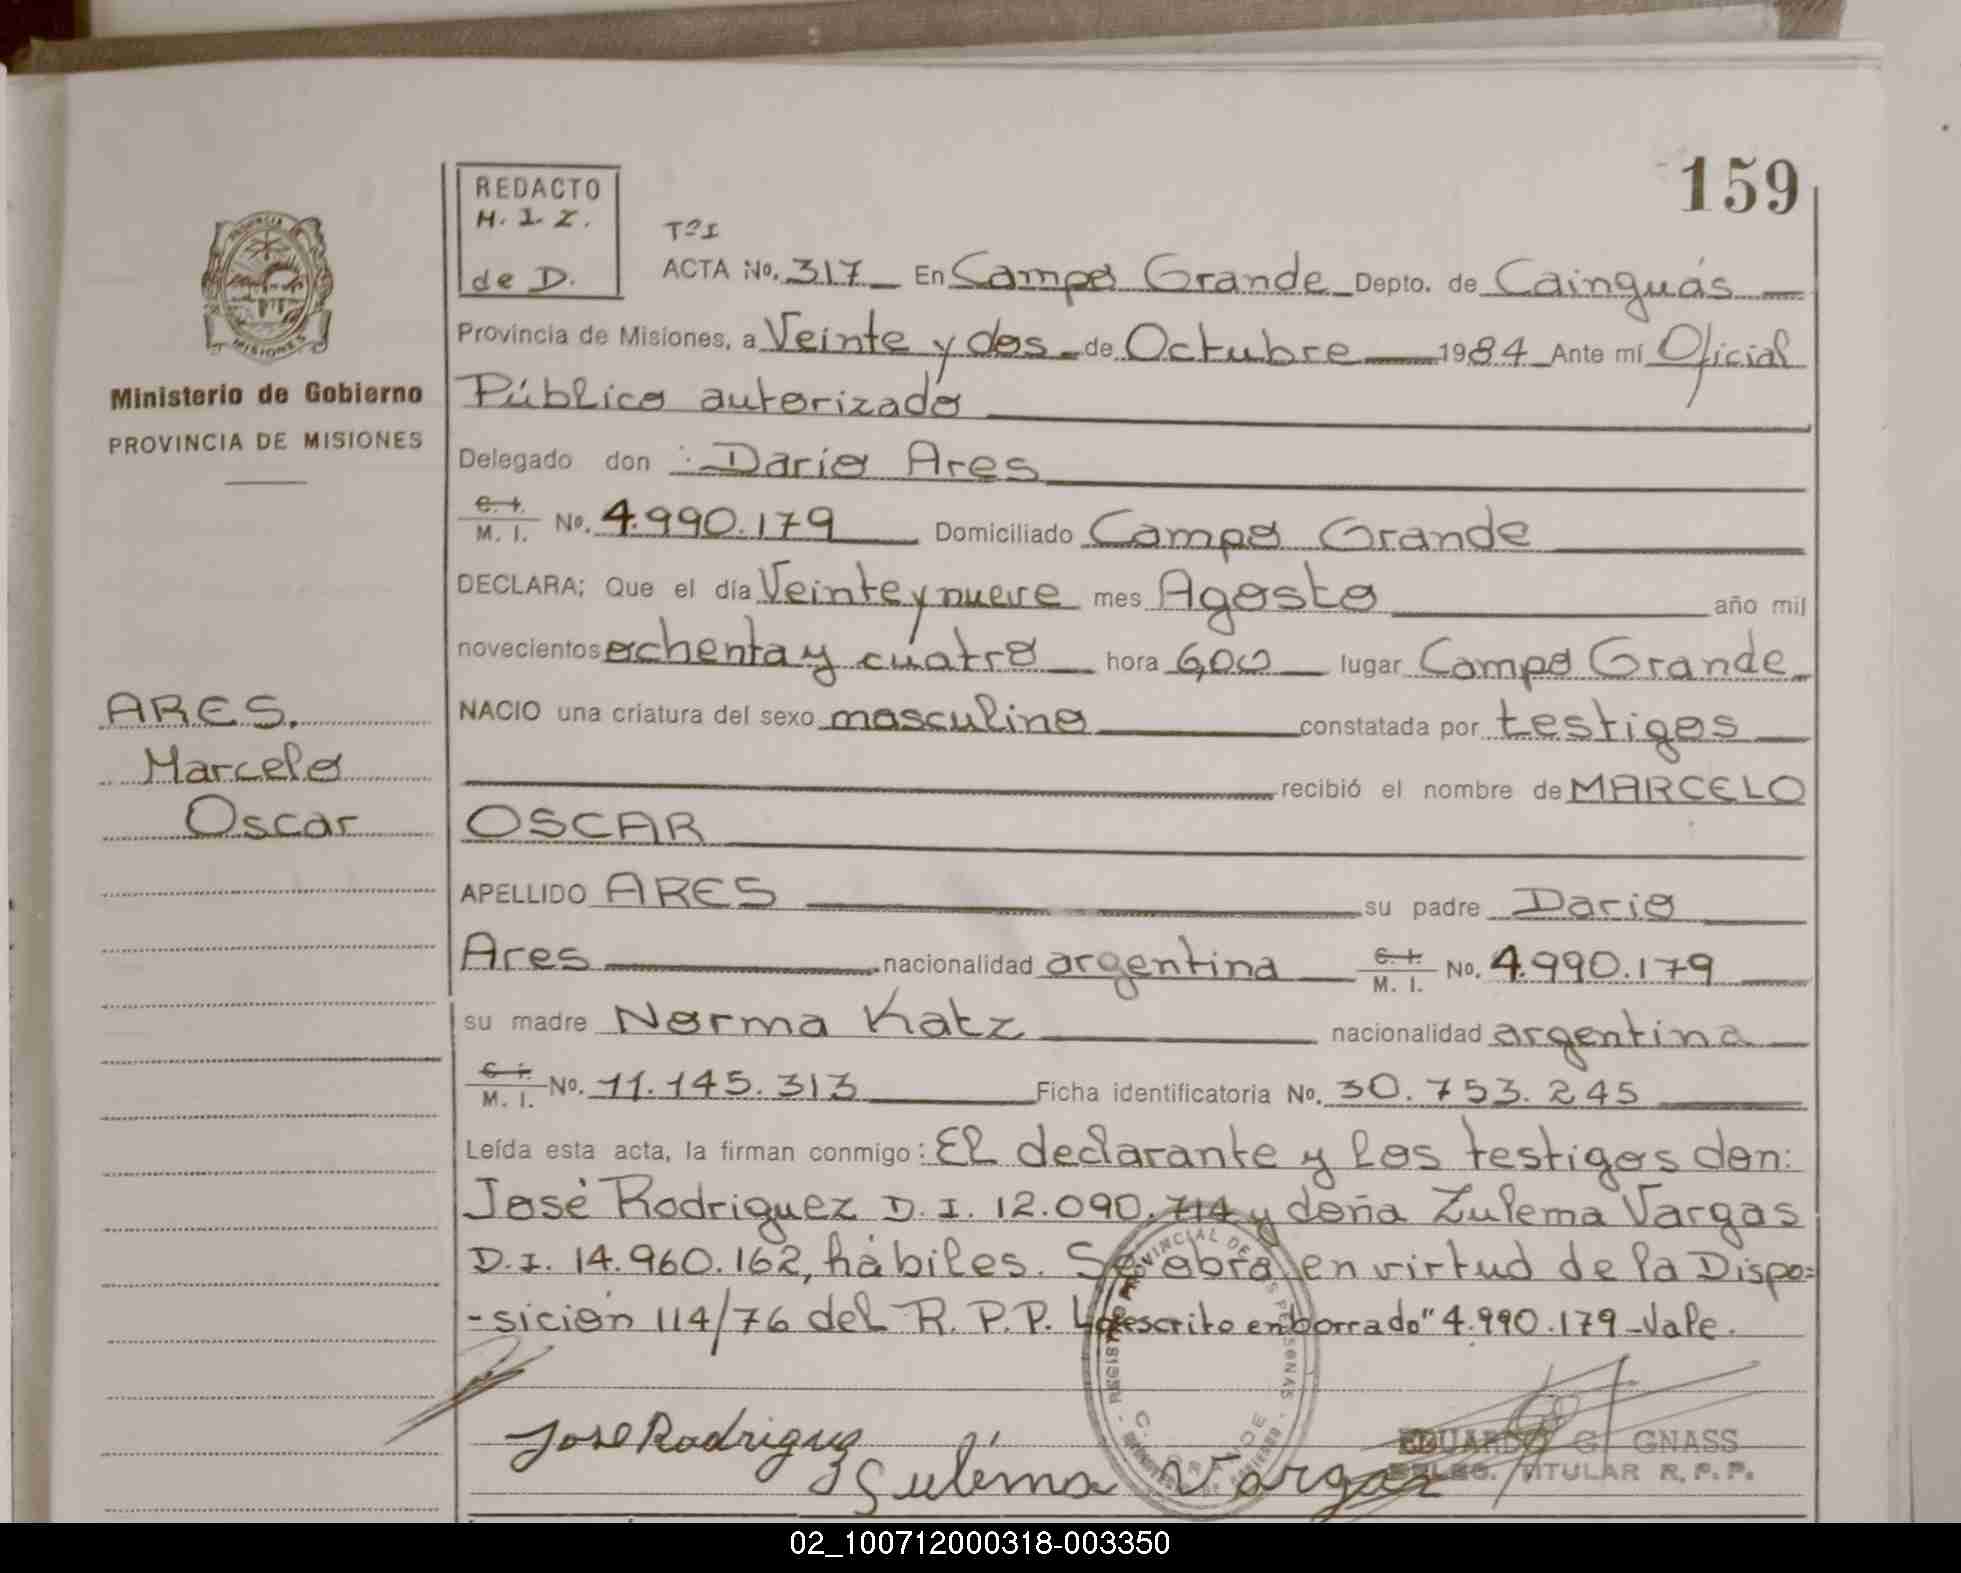 159
REDACTO
H. I. Z.
de D.
TºI
ACTA No. 317 En Campo Grande Depto. de Cainguás
Provincia de Misiones, a Veinte y dos de Octubre 1984 Ante mí Oficial
Público autorizado
Ministerio de Gobierno
PROVINCIA DE MISIONES
Delegado don Dario Ares
C. I. M. I. No. 4.990.179 Domiciliado Campo Grande
DECLARA; Que el día Veinte y nueve mes Agosto año mil
novecientos ochenta y cuatro hora 6,00 lugar Campo Grande
ARES.
Marcelo
Oscar
NACIO una criatura del sexo masculino constatada por testigos
recibió el nombre de MARCELO
OSCAR
APELLIDO ARES su padre Dario
Ares nacionalidad argentina C. I. M. I. No. 4.990.179
su madre Norma Katz nacionalidad argentina
C. I. M. I. No. 11.145.313 Ficha identificatoria No. 30.753.245
Leída esta acta, la firman conmigo: El declarante y los testigos don:
José Rodriguez D. I. 12.090.714 y doña Zulema Vargas
D. I. 14.960.162, hábiles. Se labra en virtud de la Dispo=
-sición 114/76 del R. P. P. Lo escrito en borrado" 4.990.179 -Vale.
Jose Rodriguez
Sulema Vargas
EDUARDO G. GNASS
DELEG. TITULAR R. P. P.
02_100712000318-003350